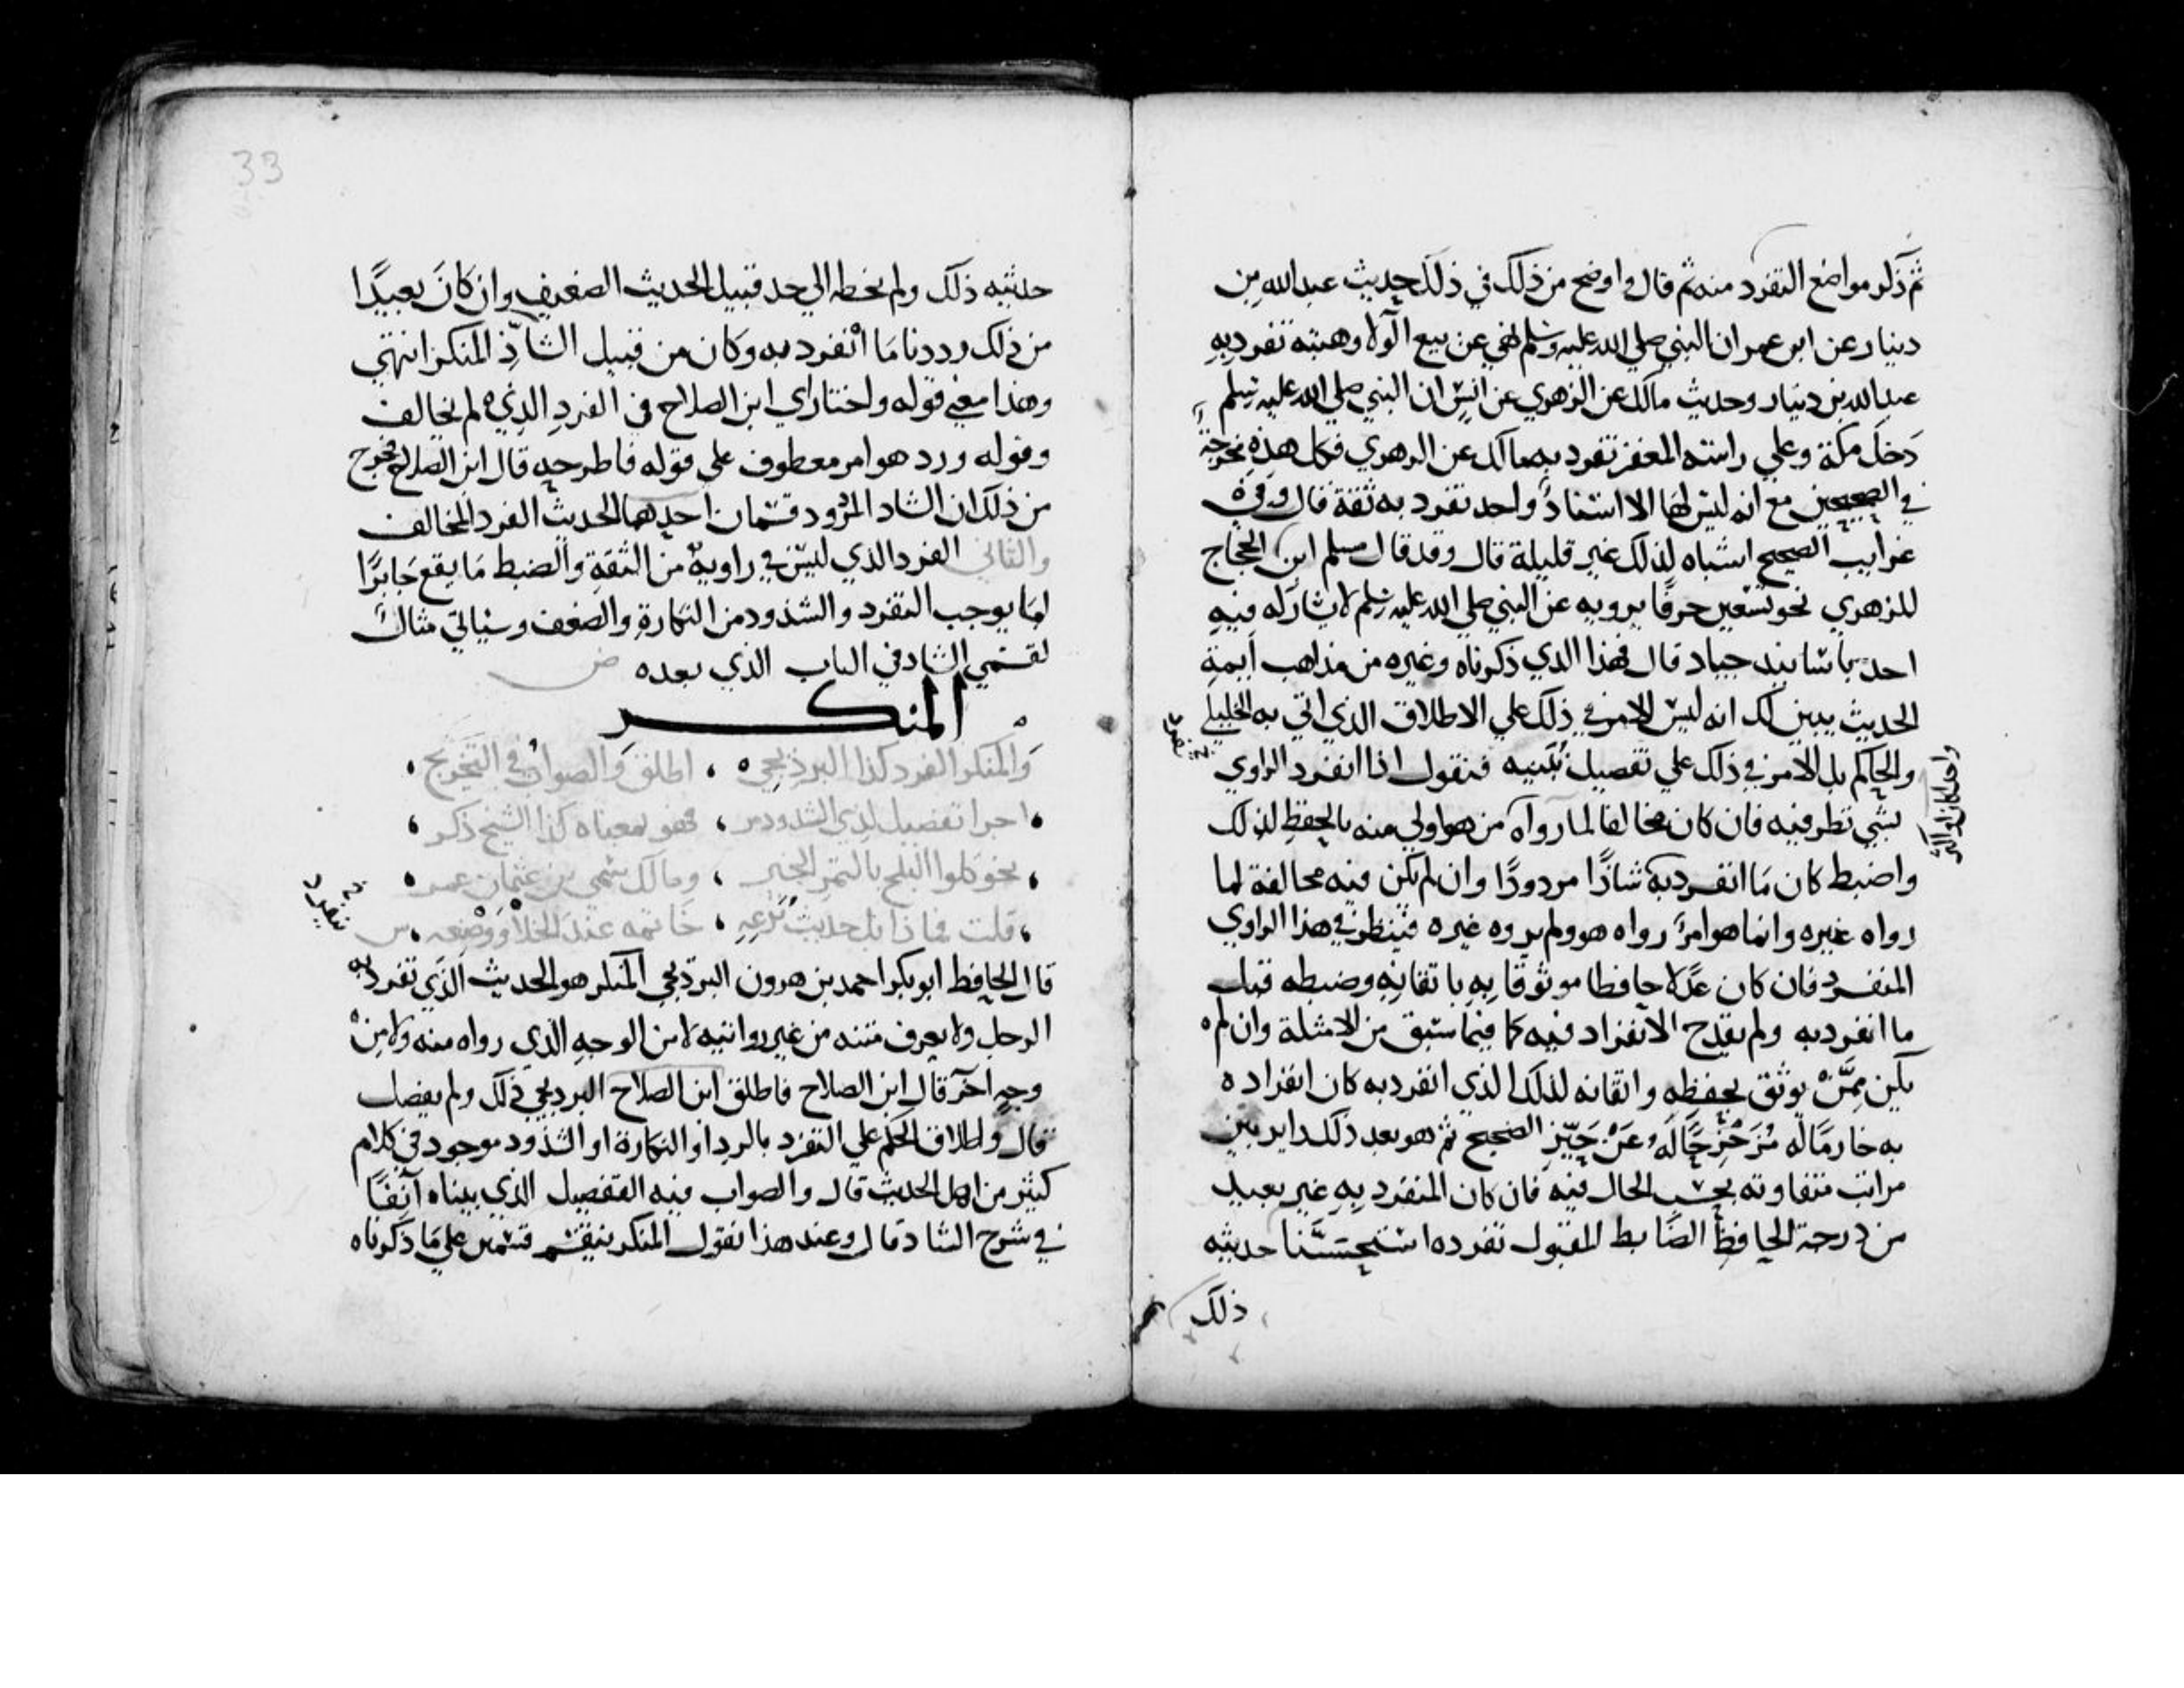 ثم ذكر مواضع التفرد منه ثم قال واوضح من ذلك في ذلك حديث عبد الله بن
دينار عن ابن عمر ان النبي صلي الله عليه وسلم نهي عن بيع الولا وهبته تفرد به
عبد الله بن دينار وحديث مالك عن الزهري عن انس ان النبي صلي الله عليه وسلم
دخل مكة وعلي راسه المغفر تفرد به مالك عن الزهري فكل هذه مخرجة
في الصحيحين مع انه ليس لها الا اسناد واحد تفرد به ثقة قال وفي
غرايب الصحيح اشباه لذلك غير قليلة قال وقد قال مسلم ابن الحجاج
للزهري نحو تسعين حرفا يرويه عن النبي صلي الله عليه وسلم لا يشاركه فيه
احد باسانيد جياد قال فهذا الذي ذكرناه وغيره من مذاهب ايمة
الحديث يبين لك انه ليس الامر في ذلك علي الاطلاق الذي اتي به الخليلي
والحاكم بل الامر في ذلك علي تفصيل نبينه فنقول اذا انفرد الراوي
بشي نظر فيه فان كان مخالفا لما رواه من هو اولي منه بالحفظ لذلك
واضبط كان ما انفرد به شاذا مردودا وان لم تكن فيه مخالفة لما
رواه غيره وانما هو امر رواه هو ولم يروه غيره فينظر في هذا الراوي
المنفرد فان كان عدلا حافظا موثوقا به باتقانه وضبطه قبل
ما انفرد به ولم يقدح الانفراد فيه كما فيما سبق من الامثلة وان لم
يكن ممن يوثق بحفظه واتقانه لذلك الذي انفرد به كان انفراده
به خارما له مزحزحا له عن حيز الصحيح ثم هو بعد ذلك داير بين
مراتب متفاوته بحسب الحال فيه فان كان المنفرد به غير بعيد
من درجة الحافظ الضابط المقبول تفرده استحسنا حديثه
ذلك
33
حديثه ذلك ولم نحطه الي حد قبيل الحديث الضعيف وان كان بعيدا
من ذلك رددنا ما انفرد به وكان من قبيل الشاذ المنكر انتهي
وهذا معني قوله واختار اي ابن الصلاح في الفرد الذي لم يخالف
وقوله ورد هو امر معطوف علي قوله فاطرحه قال ابن الصلاح فخرج
من ذلك ان الشاذ المردود قسمان احدهما الحديث الفرد المخالف
والثاني الفرد الذي ليس في راويه من الثقة والضبط ما يقع جابرا
لما يوجب التفرد والشذوذ من النكارة والضعف وسياتي مثال
لقسمي الشاذ في الباب الذي بعده
المنكر
والمنكر الفرد كذا البرذيجي ، اطلق والصواب في التخريج
اجرا تفصيل لذي الشذوذ مر ، فهو بمعناه كذا الشيخ ذكر
نحو كلوا البلح بالتمر الخبر ، ومالك سمي بن عثمان عمر
قلت فماذا بل حديث نزعه ، خاتمه عند الخلا ووضعه
قال الحافظ ابو بكر احمد بن هرون البرديجي المنكر هو الحديث الذي تفرد به
الرجل ولا يعرف متنه من غير روايته لا من الوجه الذي رواه منه ولا من
وجه اخر قال ابن الصلاح فاطلق ابن الصلاح البرديجي ذلك ولم يفصل
قال واطلاق الحكم علي التفرد بالرد او النكارة او الشذوذ موجود في كلام
كثير من اهل الحديث قال والصواب فيه التفصيل الذي بيناه آنفا
في شرح الشاذ قال وعند هذا نقول المنكر ينقسم قسمين علي ما ذكرناه
ينفرد